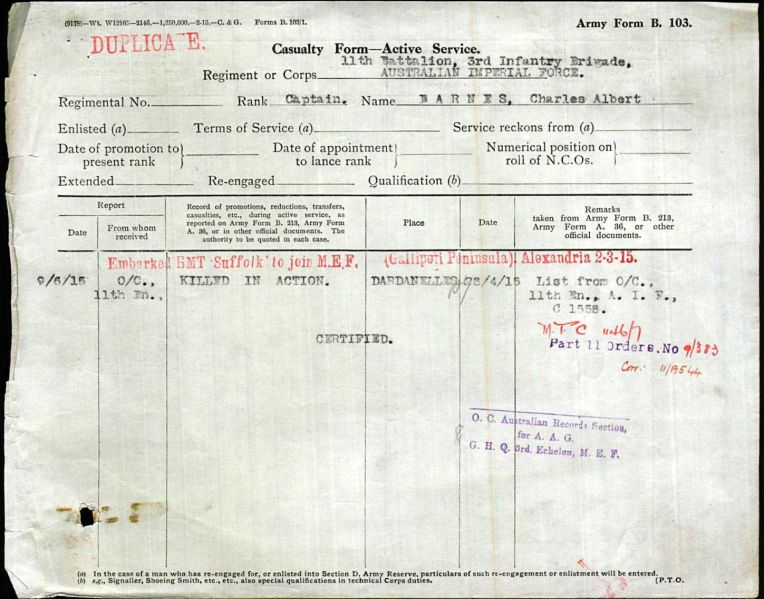 (9178)—Wt. W12165—2146.—1,250,000.—2-15.—C. & G. Forms B. 103/1.
Army Form B. 103.
DUPLICATE.
Casualty Form—Active Service.
11th Battalion, 3rd Infantry Brigade,
Regiment or Corps AUSTRALIAN IMPERIAL FORCE.
Regimental No. Rank Captain. Name BARNES, Charles Albert
Enlisted (a) Terms of Service (a) Service reckons from (a)
Date of promotion to present rank } Date of appointment to lance rank } Numerical position on roll of N.C.Os. }
Extended Re-engaged Qualification (b)
Report
Date
From whom received
Record of promotions, reductions, transfers,
casualties, etc., during active service, as
reported on Army Form B. 213, Army Form
A. 36, or in other official documents. The
authority to be quoted in each case.
Place
Date
Remarks
taken from Army Form B. 213,
Army Form A. 36, or other
official documents.
Embarked HMT 'Suffolk' to join M.E.F. (Gallipoli Peninsula). Alexandria 2-3-15.
9/6/15 O/C., KILLED IN ACTION. DARDANELLES /4/15 List from O/C.,
11th Bn., 11th Bn., A. I. F.,
C 1558.
CERTIFIED.
Part 11 Orders. No 9/383
Corr: 11/A544
O. C. Australian Records Section,
for A. A. G.
G. H. Q. 3rd. Echelon, M. E. F.
(a) In the case of a man who has re-engaged for, or enlisted into Section D. Army Reserve, particulars of such re-engagement or enlistment will be entered.
(b) e.g., Signaller, Shoeing Smith, etc., etc., also special qualifications in technical Corps duties. [P.T.O.